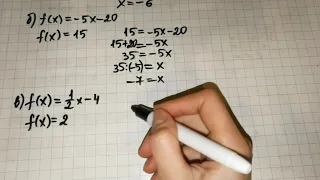 x=-6
б) f(x)=-5x-20
f(x)=15
15=-5x-20
15+20=-5x
35=-5x
35:(-5)=x
-7=x
в) f(x)=1/2x-4
f(x)=2